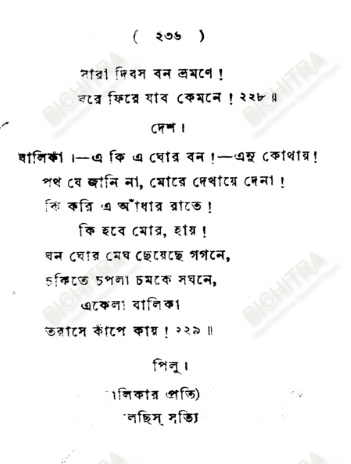 ( ২৩৬ )
সারা দিবস বন ভ্রমণে !
ঘরে ফিরে যাব কেমনে ! ২২৮ ॥
দেশ ।
বালিকা ।—এ কি এ ঘোর বন !—এনু কোথায় !
পথ যে জানি না, মোরে দেখায়ে দেনা !
কি করি এ আঁধার রাতে !
কি হবে মোর, হায় !
ঘন ঘোর মেঘ ছেয়েছে গগনে,
চকিতে চপলা চমকে সঘনে,
একেলা বালিকা
তরাসে কাঁপে কায় ! ২২৯ ॥
পিলু ।
লিকার প্রতি)
লছিস্ সত্যি
BICHITRA
BICHITRA
BICHITRA
BICHITRA